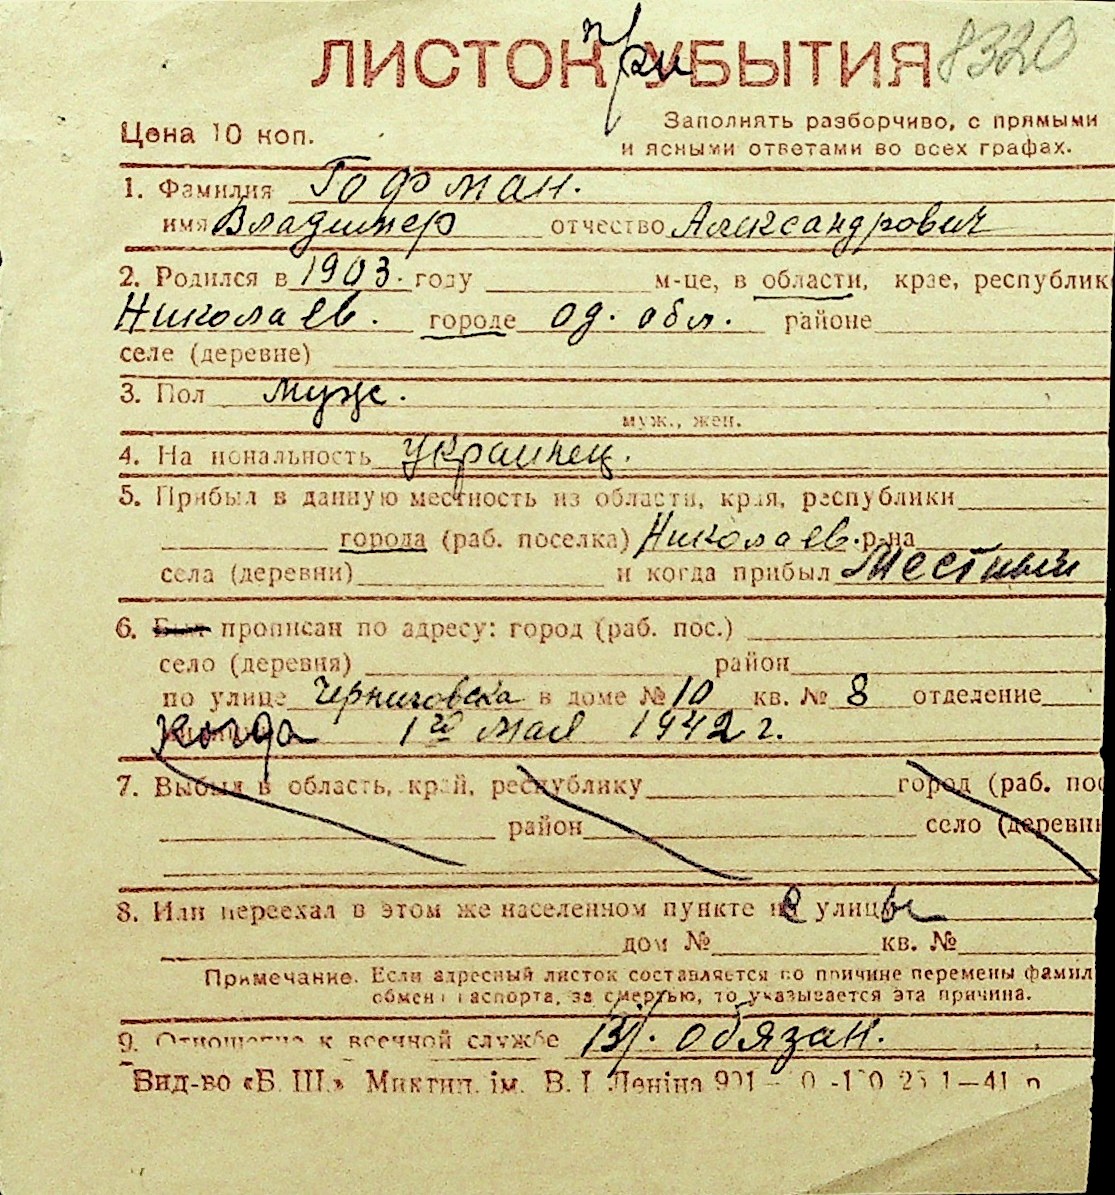 ЛИСТОК прибытия 8320
Цена 10 коп.
Заполнять разборчиво, с прямыми
и ясными ответами во всех графах.
1. Фамилия Гофман.
имя Владимер отчество Александрович
2. Родился в 1903. году м-це, в области, крае, республик
Николаев. городе од. обл. районе
селе (деревне)
3. Пол муж.
муж., жен.
4. Национальность украинец.
5. Прибыл в данную местность из области, края, республики
города (раб. поселка) Николаев. р-на
села (деревни) и когда прибыл Местный
6. Был прописан по адресу: город (раб. пос.)
село (деревня) район
по улице Черниговска в доме № 10 кв. № 8 отделение
Когда 1го мая 1942 г.
7. Выбыл в область, край, республику город (раб. пос
район село (деревн
8. Или переехал в этом же населенном пункте с улицы
дом № кв. №
Примечание. Если адресный листок составляется по причине перемены фамил
обмена паспорта, за смертью, то указывается эта причина.
9. Отношение к военной службе В/. обязан.
Вид-во «Б. Ш.» Миктип. ім. В. І Леніна